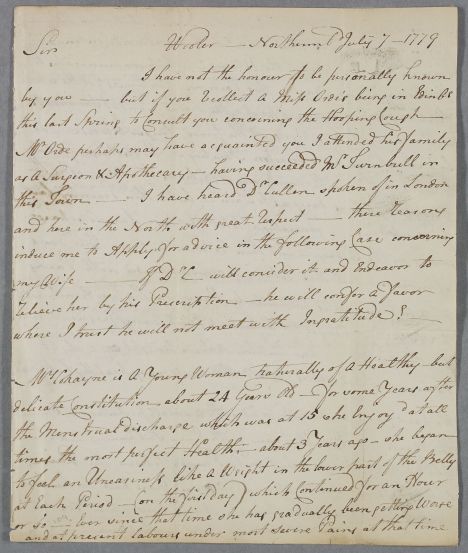 Sir Wooler — Northum:d July 7 — 1779
I have not the honour to be personally known
by you — but if you recollect a Miss Ordes being in Edinbr
this last Spring to Consult you concerning the Hooping Cough —
Mr Orde perhaps may have acquainted you I attended his family
as a Surgeon & Apothecary — having succeeded Mr Turnbull in
this Town — I have heard Dr Cullen spoken of in London
and here in the North with great respect — these reasons
induce me to Apply for advice in the following Case concerning
my Wife — If Dr C will consider it and Endeavor to
relieve her by his Prescription — he will confer a favor
where I trust he will not meet with Ingratitude! —
Mrs is A Young Woman naturally of A Healthy — but
delicate Constitution about 24 Years Old — for some Years after
the Menstrual discharge which was at 15 she Enjoyed at all
times the most perfect Health — about 3 Years ago — she began
to feel an Uneasiness like A Wieght in the lower part of the Belly
at Each Period — (on the first day) which Continued for an Hour
or so — ever since that time she has gradually been getting Worse
and at present labours under most severe Pains at that time